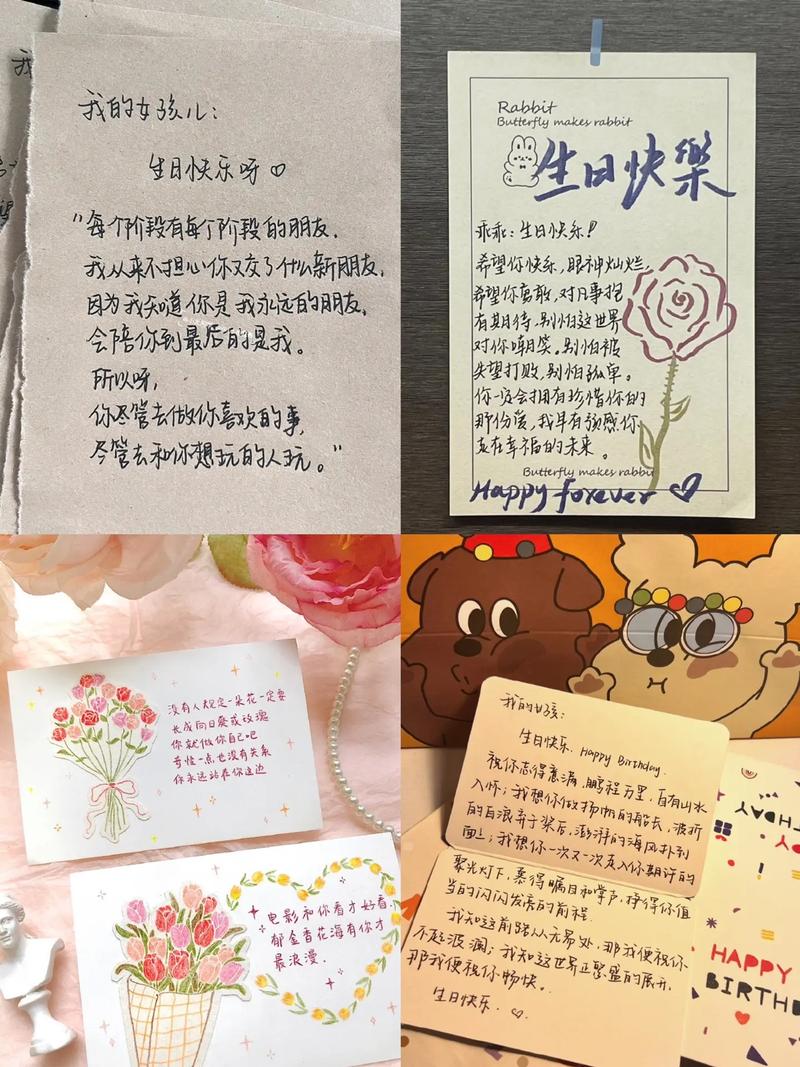 我的女孩儿：
生日快乐呀♡
"每个阶段有每个阶段的朋友，
我从来不担心你又交了什么新朋友，
因为我知道你是我永远的朋友，
会陪你到最后的是我。
所以呀，
你尽管去做你喜欢的事，
尽管去和你想玩的人玩。"
Rabbit
Butterfly makes rabbit
生日快樂
乖乖：生日快乐！
希望你快乐，眼神灿烂，
希望你勇敢，对凡事抱
有期待，别怕这世界
对你嘲笑。别怕被
失望打败，别怕孤单。
你一定会拥有珍惜你的
那份爱，我早有预感你
走在幸福的未来。
Butterfly makes rabbit
Happy forever ♡
没有人规定一朵花一定要
长成向日葵或玫瑰
你就做你自己吧
奇怪一点也没有关系
你永远站在你这边
电影和你看才好看
郁金香花海有你才
最浪漫.
我的女孩：
生日快乐. Happy Birthday.
祝你志得意满，鹏程万里，自有山水
入怀；我想你做扬帆的船长，波折
的白浪弃于桨后，澎湃的海风扑到
面上；我想你一次又一次走入你期许的
聚光灯下，慕得瞩目和掌声，挣得你值
当的闪闪发亮的前程.
我知这前路从无易处，那我便祝你
不起波澜；我知这世界正繁盛的展开，
那我便祝你畅快.
生日快乐. ♡.
HAPPY
BIRTHD